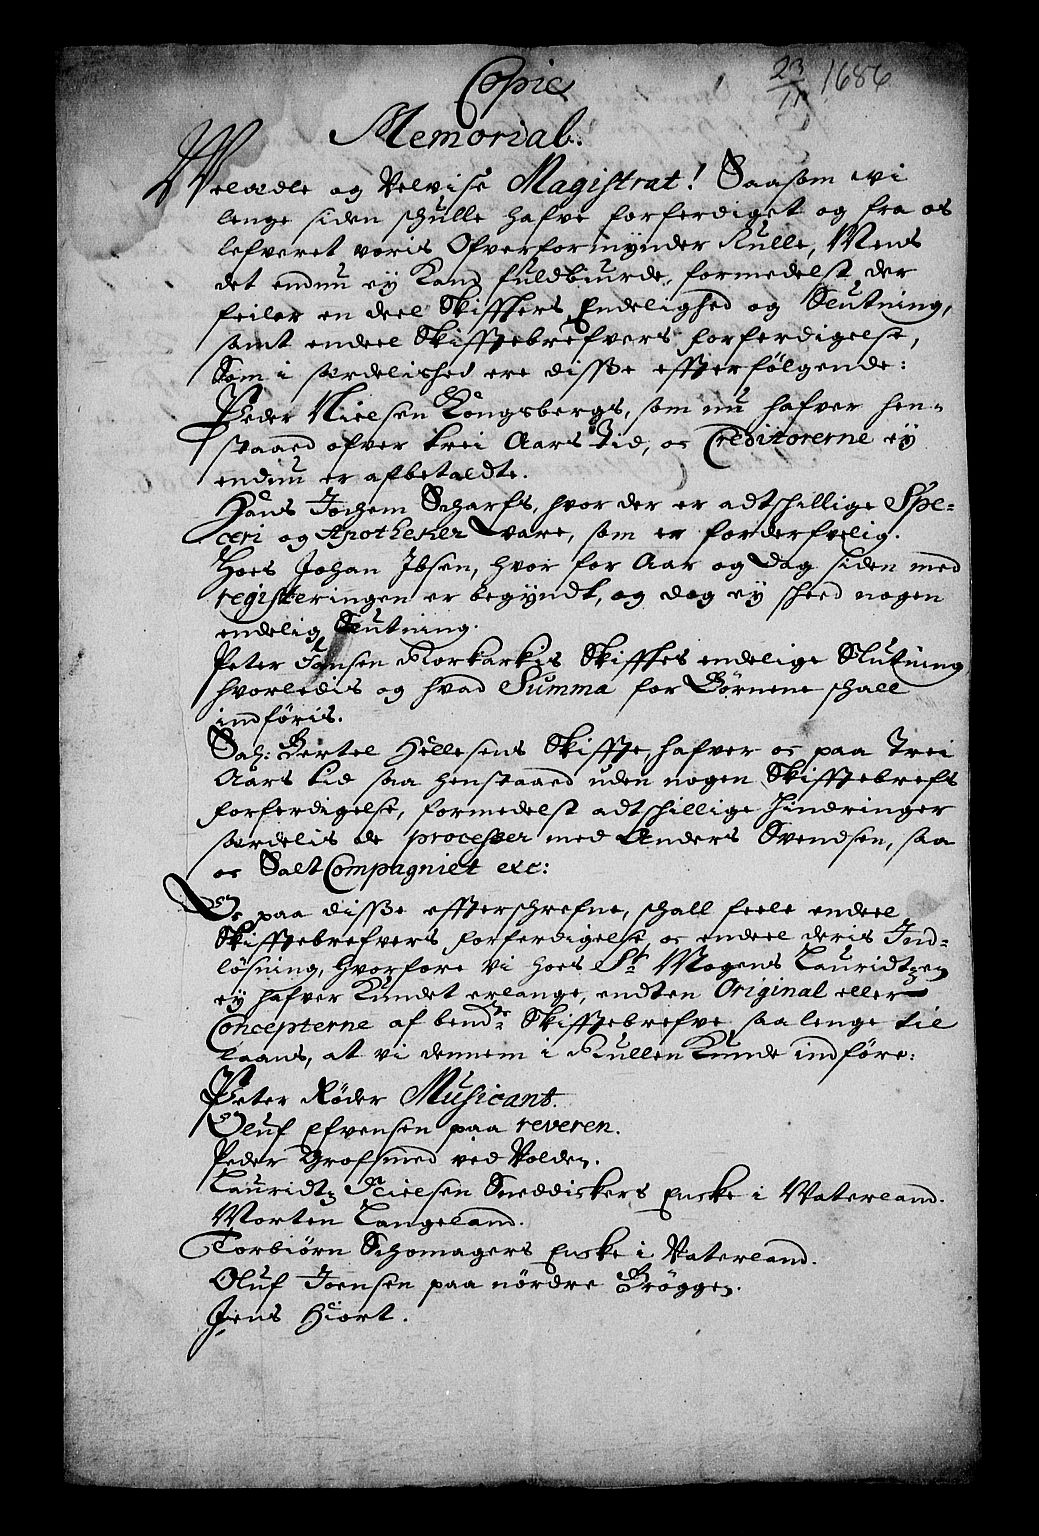 Copie
23/11 1686
Memorial:
Welædle og Velvise Magistrat! Saasom wi
lenge siden schulle hafve forferdiget og fra os
lefveret voris Ofverformynder Rulle, Mens
det endnu ey Kand fuldbiurde, formedelst der
feiler en deel Skiffters Endelighed og Slutning,
samt endeel Skifftebrefvers forferdigelse,
Som i særdelished ere disße effterfölgende:
Peder Nielsen Kongsbergs, som nu hafver hen-
staaed ofver trei Aars Tid, oc Creditorerne ey
endnu er afbetaldte.
Hans Jochem Scharfs, hvor der er adtshillige Spe-
ceri og Apotheker Vare, som er forderfvelig.
Hoes Johan Ibsen, hvor for Aar og Dag siden med
registeringen er begyndt, og dog ey scheed nogen
endelig Slutning.
Peter Jansen Norkarkis Skifftes endelige Slutning
hvorledis og hvad Summa for Börnene schall
indföris.
Sal: Bertel Hellesens Skiffte, hafver oc paa Trei
Aars tid saa henstaaed uden nogen Skifftebrefs
forferdigelse, formedelst adtshillige Hindringer
særdelis de processer med Anders Svendsen, saa
oc Salt Compagniet etc:
Oc paa disße effterschrefne, schall feele endeel
Skifftebrefvers forferdigelse, oc endeel deris Ind-
lösning, hvorfore vi hoes Sr. Mogens Lauridtzen
ey hafver Kundet erlange, endten Original eller
Concepterne af bemdte Skifftebrefve saalenge til
laans, at vi dennem i Rullen Kunde indföre:
Peter Röder Musicant.
Oluf Efvensen paa reveren.
Peder Grofsmed ved Volden.
Lauridtz Nielsen Sneddikers Enske i Vaterland.
Morten Langeland.
Torbiörn Schomagers Enske i Vaterland.
Oluf Joensen paa nördre Brögge.
Jens Hiort.